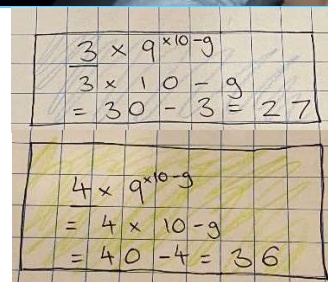 3 × 9 ×10-g
3 × 10 - g
= 30 - 3 = 27
4 × 9 ×10-g
= 4 × 10 - g
= 40 - 4 = 36